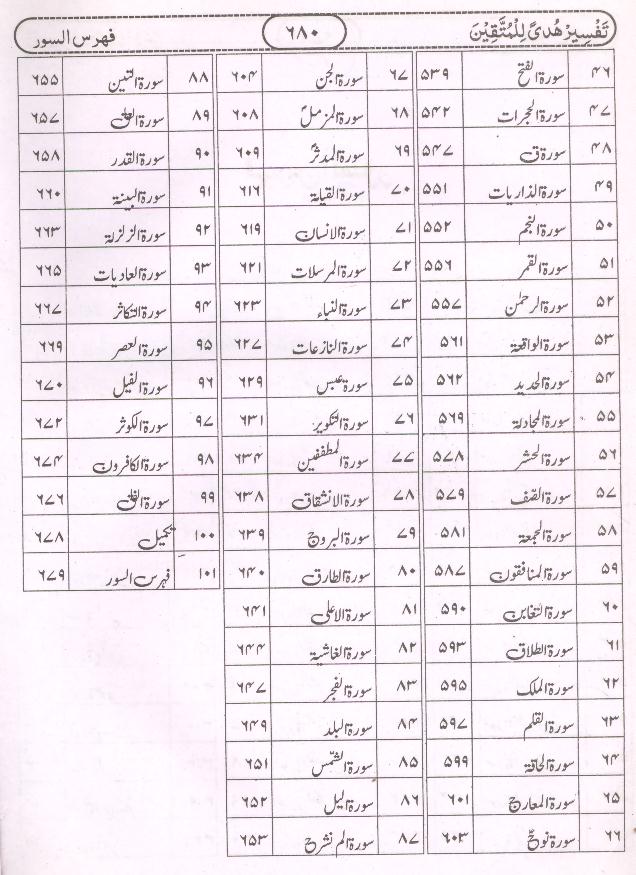 تَفْسِیْر ھُدًی لِّلْمُتَّقِیْنَ
۶۸۰
فہرس السور
۴۶ سورۃ الفتح ۵۳۹
۴۷ سورۃ الحجرات ۵۴۲
۴۸ سورۃ ق ۵۴۷
۴۹ سورۃ الذاریات ۵۵۱
۵۰ سورۃ النجم ۵۵۲
۵۱ سورۃ القمر ۵۵۶
۵۲ سورۃ الرحمٰن ۵۵۷
۵۳ سورۃ الواقعۃ ۵۶۱
۵۴ سورۃ الحدید ۵۶۲
۵۵ سورۃ المجادلۃ ۵۶۹
۵۶ سورۃ الحشر ۵۷۸
۵۷ سورۃ الصّف ۵۷۹
۵۸ سورۃ الجمعۃ ۵۸۱
۵۹ سورۃ المنافقون ۵۸۷
۶۰ سورۃ التغابن ۵۹۰
۶۱ سورۃ الطلاق ۵۹۳
۶۲ سورۃ الملک ۵۹۵
۶۳ سورۃ القلم ۵۹۷
۶۴ سورۃ الحاقۃ ۵۹۹
۶۵ سورۃ المعارج ۶۰۱
۶۶ سورۃ نوحؑ ۶۰۳
۶۷ سورۃ الجن ۶۰۴
۶۸ سورۃ المزملؐ ۶۰۸
۶۹ سورۃ المدثرؐ ۶۰۹
۷۰ سورۃ القیامۃ ۶۱۶
۷۱ سورۃ الانسان ۶۱۹
۷۲ سورۃ المرسلات ۶۲۱
۷۳ سورۃ النباء ۶۲۳
۷۴ سورۃ النازعات ۶۲۷
۷۵ سورۃ عبس ۶۲۹
۷۶ سورۃ التکویر ۶۳۱
۷۷ سورۃ المطففین ۶۳۴
۷۸ سورۃ الانشقاق ۶۳۸
۷۹ سورۃ البروج ۶۳۹
۸۰ سورۃ الطارق ۶۴۰
۸۱ سورۃ الاعلی ۶۴۱
۸۲ سورۃ الغاشیۃ ۶۴۴
۸۳ سورۃ الفجر ۶۴۷
۸۴ سورۃ البلد ۶۴۹
۸۵ سورۃ الشّمس ۶۵۱
۸۶ سورۃ الیل ۶۵۲
۸۷ سورۃ الم نشرح ۶۵۳
۸۸ سورۃ التین ۶۵۵
۸۹ سورۃ العلق ۶۵۷
۹۰ سورۃ القدر ۶۵۸
۹۱ سورۃ البینۃ ۶۶۰
۹۲ سورۃ الزلزلۃ ۶۶۳
۹۳ سورۃ العادیات ۶۶۵
۹۴ سورۃ التکاثر ۶۶۷
۹۵ سورۃ العصر ۶۶۹
۹۶ سورۃ الفیل ۶۷۰
۹۷ سورۃ الکوثر ۶۷۲
۹۸ سورۃ الکافرون ۶۷۴
۹۹ سورۃ الفلق ۶۷۶
۱۰۰ تکمیل ۶۷۸
۱۰۱ فہرس السور ۶۷۹